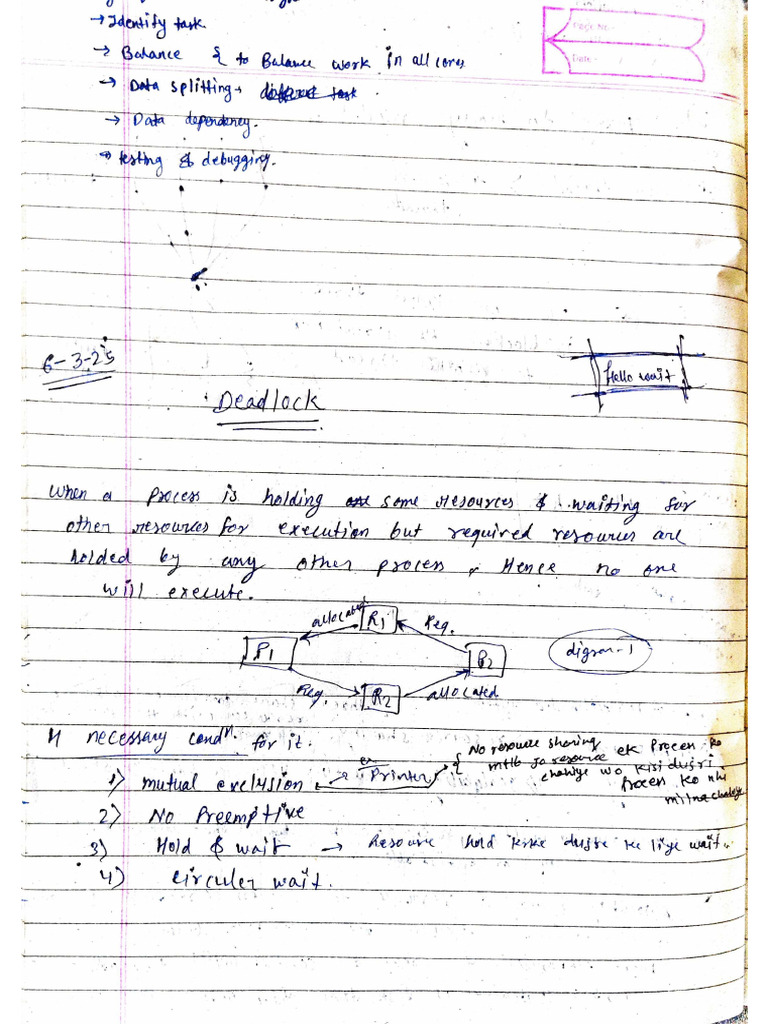 → Identify task
→ Balance & to Balance work in all cores
→ Data splitting →
→ Data dependency.
→ testing & debugging.
6-3-25
Hello wait
Deadlock
When a process is holding some resources & waiting for
other resources for execution but required resources are
holded by any other process, Hence no one
will execute.
allocated R1 Req.
P1 P2 digram-1
Req. R2 allocated
4 necessary condn. for it.
1) mutual exclusion → ex Printer → { No resource sharing
mtlb jo resource ek Process ko
chahiye wo kisi dusri
Process ko nhi
milna chahiye
2) No Preemptive
3) Hold & wait → Resource hold krke dusre ke liye wait.
4) circuler wait.